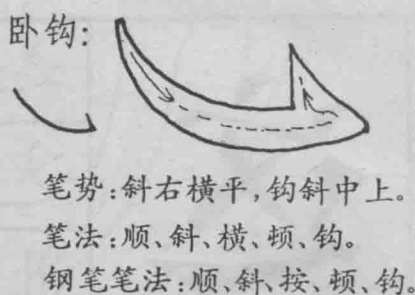 卧钩:
笔势:斜右横平,钩斜中上。
笔法:顺、斜、横、顿、钩。
钢笔笔法:顺、斜、按、顿、钩。